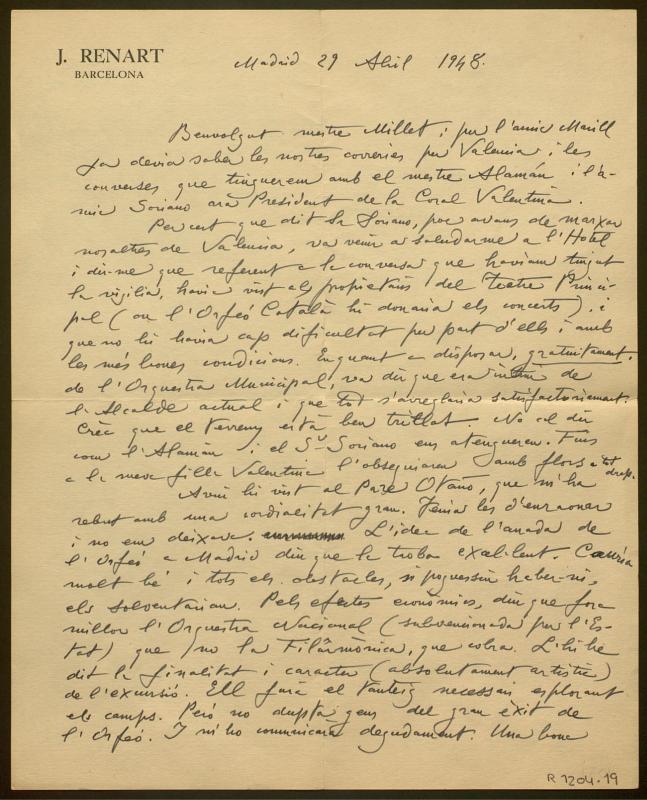 J. RENART
BARCELONA
Madrid 29 Abril 1948.
Benvolgut mestre Millet: per l'amic Marill
ja devia saber les nostres correries per Valencia i les
converses que tinguerem amb el mestre Alamán i l'a-
mic Soriano ara President de la Coral Valentina.
Per cert que dit Sr Soriano, poc avans de marxar
nosaltres de Valencia, va venir a saludarme a l'Hotel
i dir-me que referent a la conversa que haviam tingut
la vigilia, havia vist als propietaris del Teatre Princi-
pal (on l'Orfeó Català hi donaria els concerts), i
que no hi havia cap dificultat per part d'ells i amb
les més bones condicions. En quant a disposar, gratuitament,
de l'Orquestra Municipal, va dir que era intim de
l'Alcalde actual i que tot s'arreglaria satisfactoriament.
Crec que el terreny està ben trillat. No cal dir
com l'Alamán i el Sr Soriano ens atengueren. Fins
a la meva filla Valentina l'obsequiaren amb flors a tot drap.
Avui hi vist al Pare Otaño, que m'ha
rebut amb una cordialitat gran. Tenia les d'enraonar
i no em deixava. L'idea de l'anada de
l'Orfeó a Madrid diu que la troba excel·lent. Cauria
molt bé i tots els obstacles, si poguessin haber-ni,
els solventarian. Pels efectes econòmics, diu que fora
millor l'Orquestra Nacional (subvencionada per l'Es-
tat) que no la Filarmònica, que cobra. L'hi he
dit la finalitat i caracter (absolutament artistic)
de l'excursió. Ell farà el tanteig necessari explorant
els camps. Però no dupta gens del gran èxit de
l'Orfeó. I m'ho comunicarà degudament. Una bona
R 1204.19